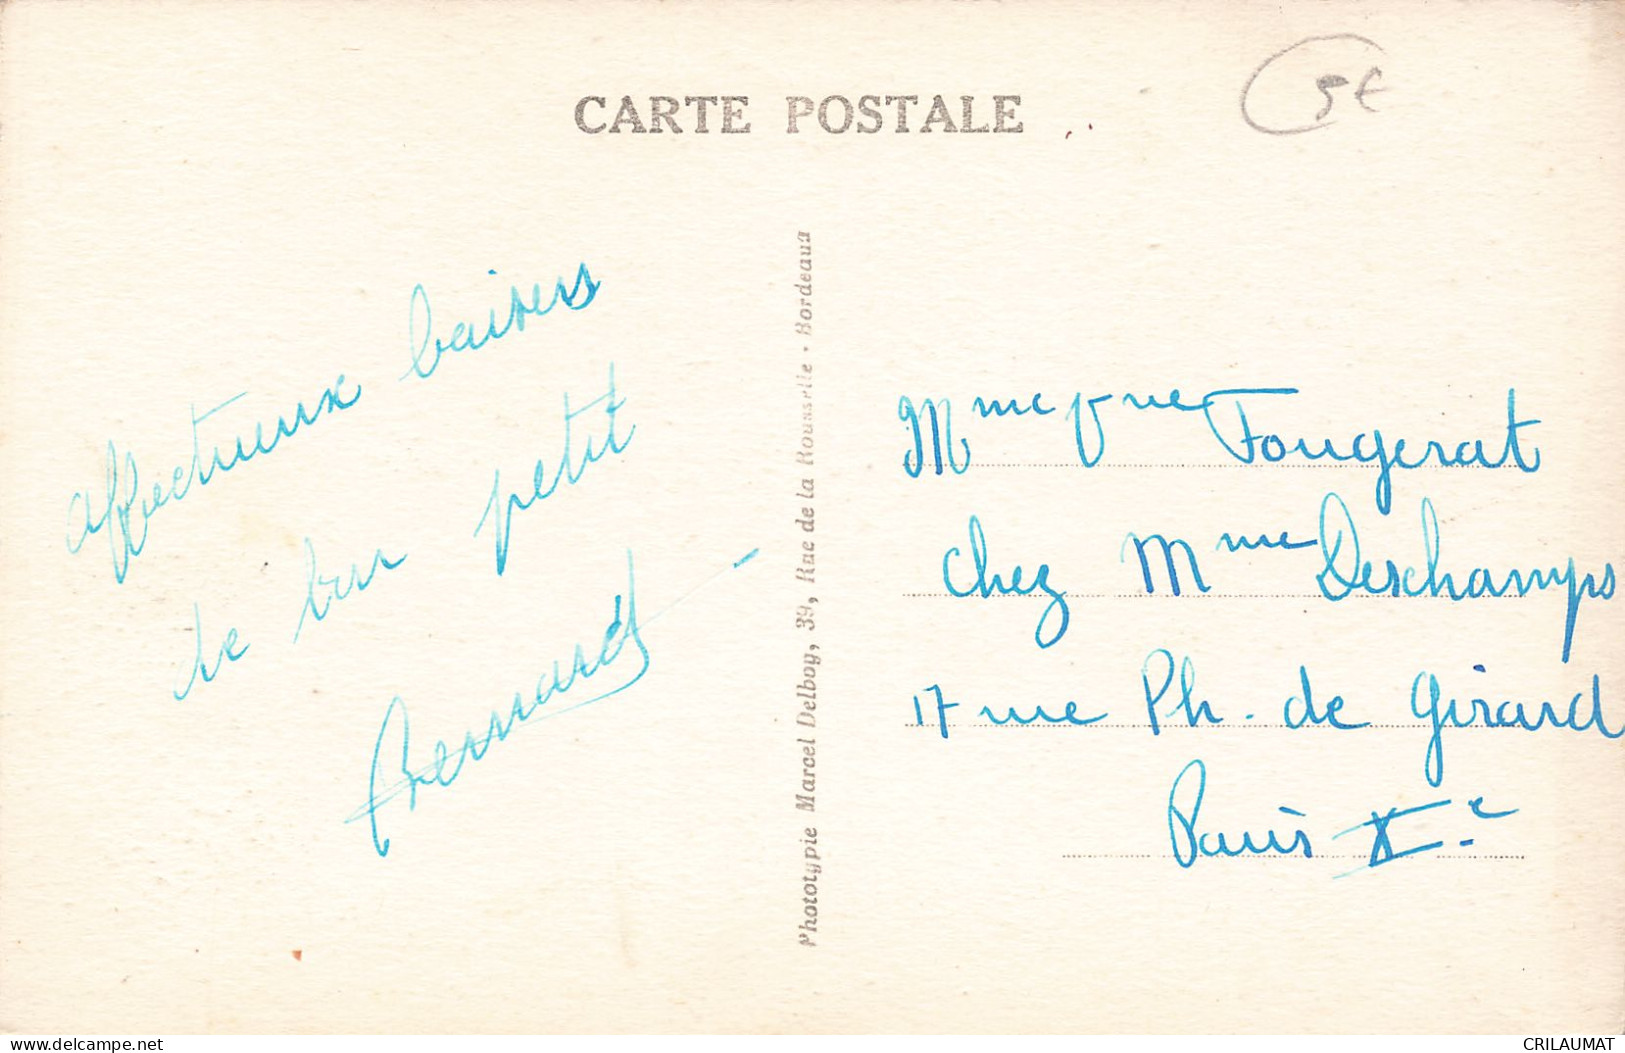 CARTE POSTALE
5€
affectueux baisers
de ton petit
Bernard
Phototypie Marcel Delboy, 39, Rue de la Rousselle - Bordeaux
Mme Vve Fougerat
chez Mme Deschamps
17 rue Ph. de Girard
Paris Xe
www.delcampe.net
CRILAUMAT